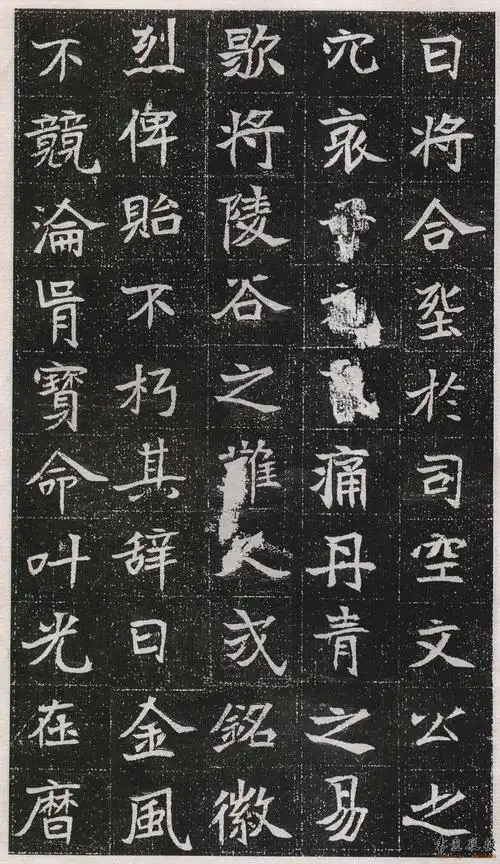 日将合於司空文公之
穴哀痛丹青之易
歇将陵谷之難久式銘徽
烈俾貽不朽其辞曰金風
不競淪胥寳命叶光在暦